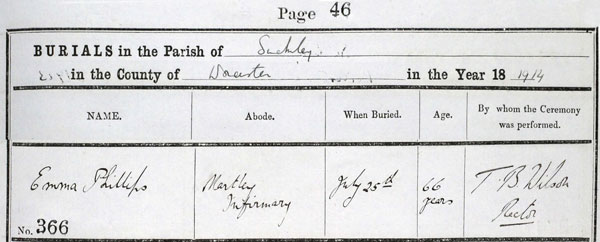 Page 46
BURIALS in the Parish of Suckley
in the County of Worcester in the Year 18 1914
NAME. Abode. When Buried. Age. By whom the Ceremony was performed.
Emma Phillips Martley Infirmary July 25th 66 years T. B. Wilson Rector
No. 366